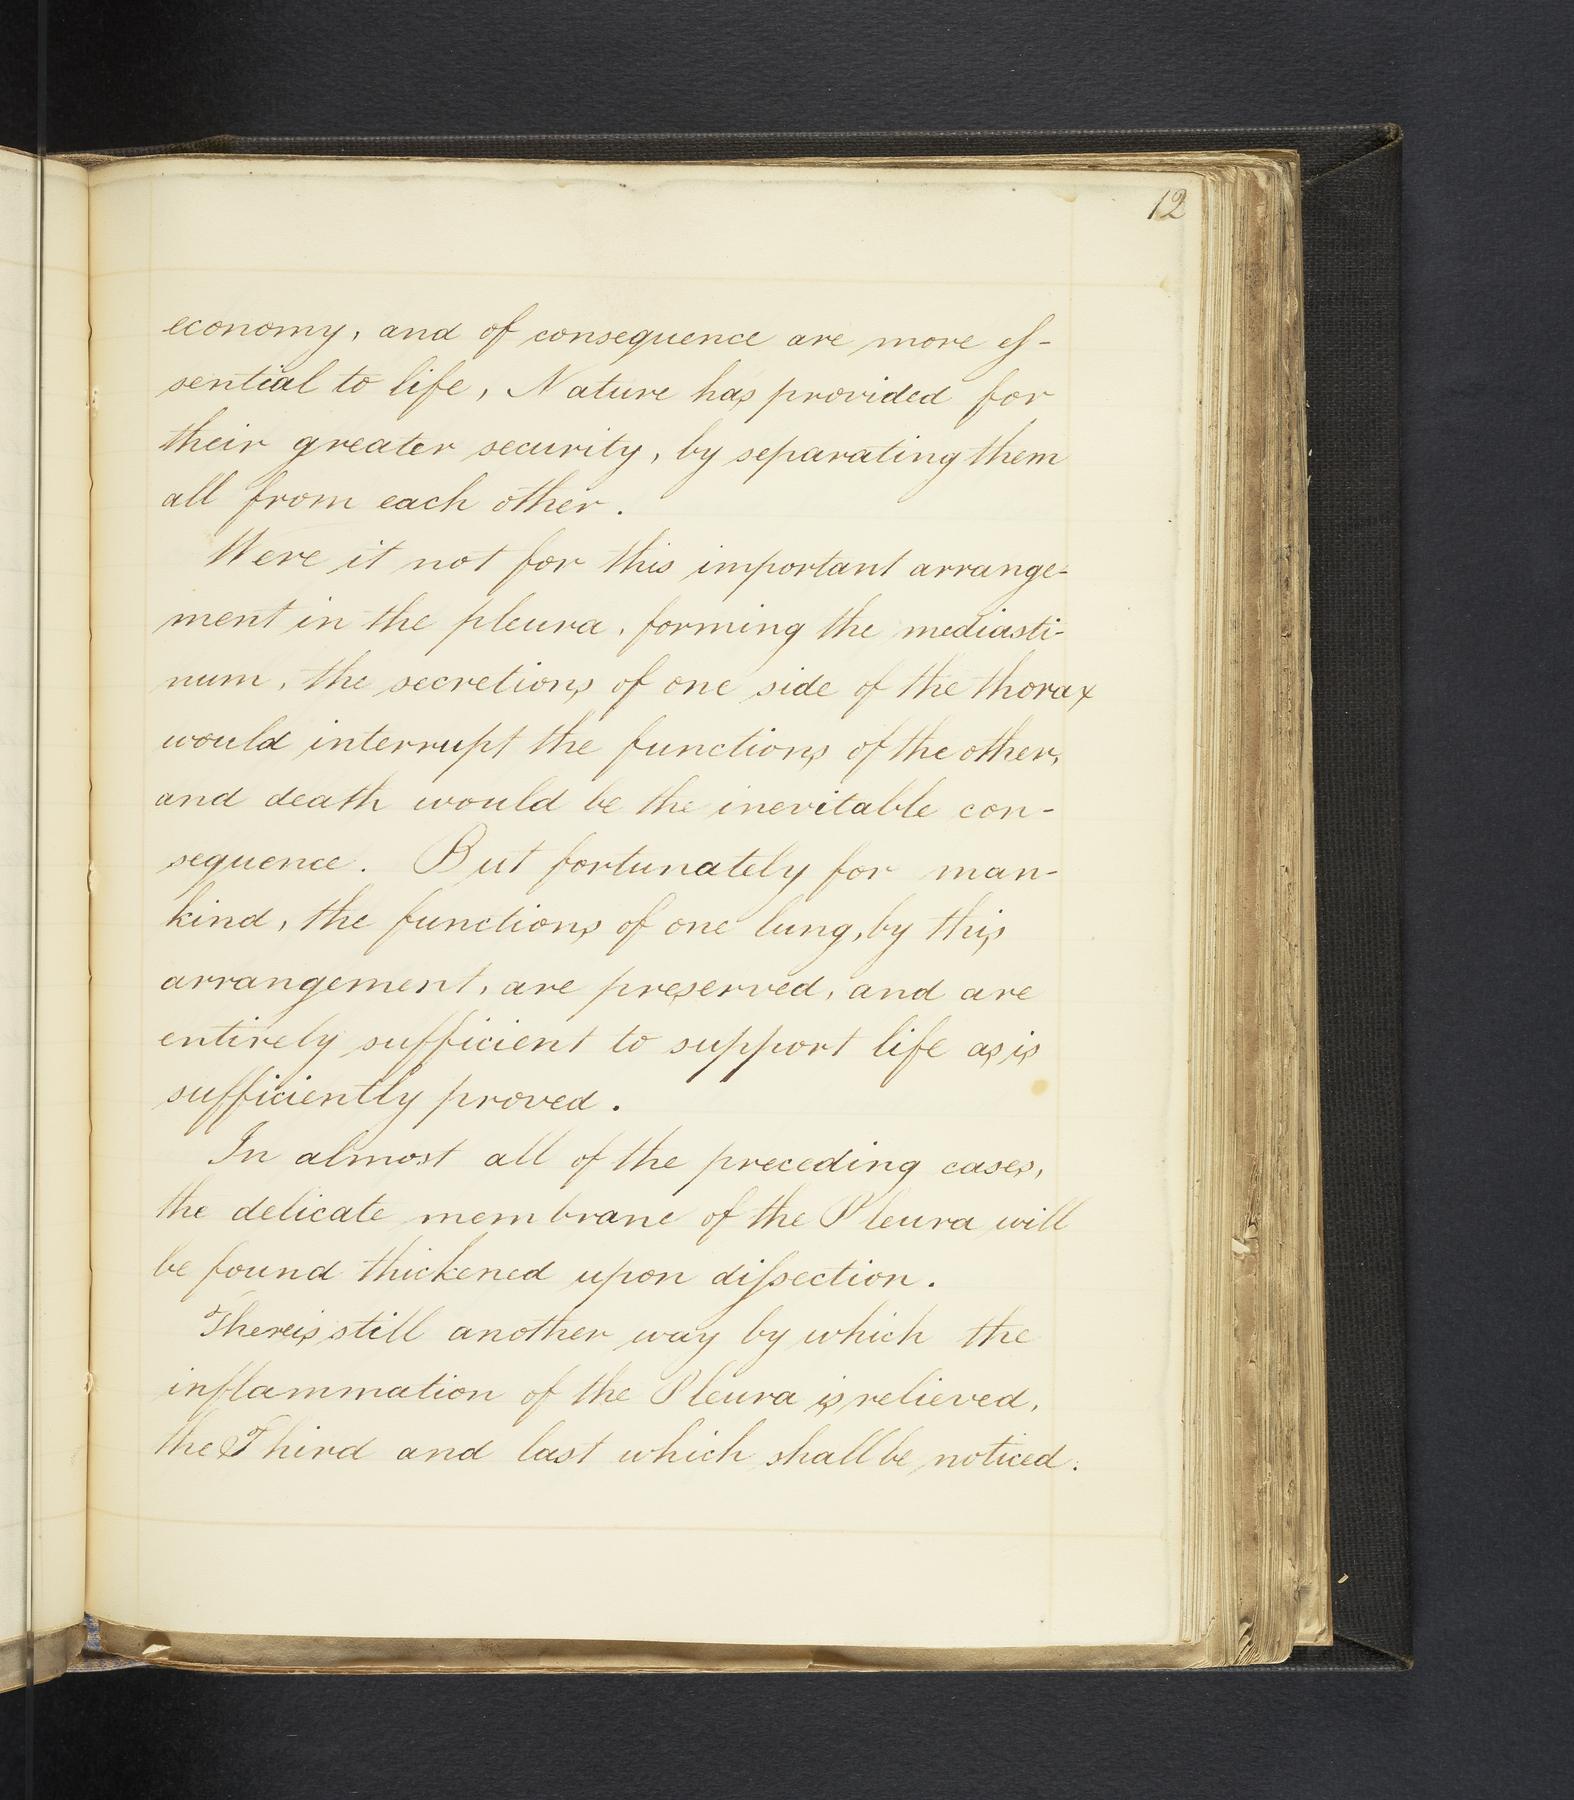 12
economy, and of consequence are more eſ-
sential to life, Nature has provided for
their greater security, by separating them
all from each other.
Were it not for this important arrange-
ment in the pleura, forming the mediasti-
num, the secretions of one side of the thorax
would interrupt the functions of the other,
and death would be the inevitable con-
sequence. But fortunately for man-
kind, the functions of one lung, by this
arrangement, are preserved, and are
entirely sufficient to support life as is
sufficiently proved.
In almost all of the preceding cases,
the delicate membrane of the Pleura will
be found thickened upon diſsection.
There is still another way by which the
inflammation of the Pleura is relieved,
the Third and last which shall be noticed.